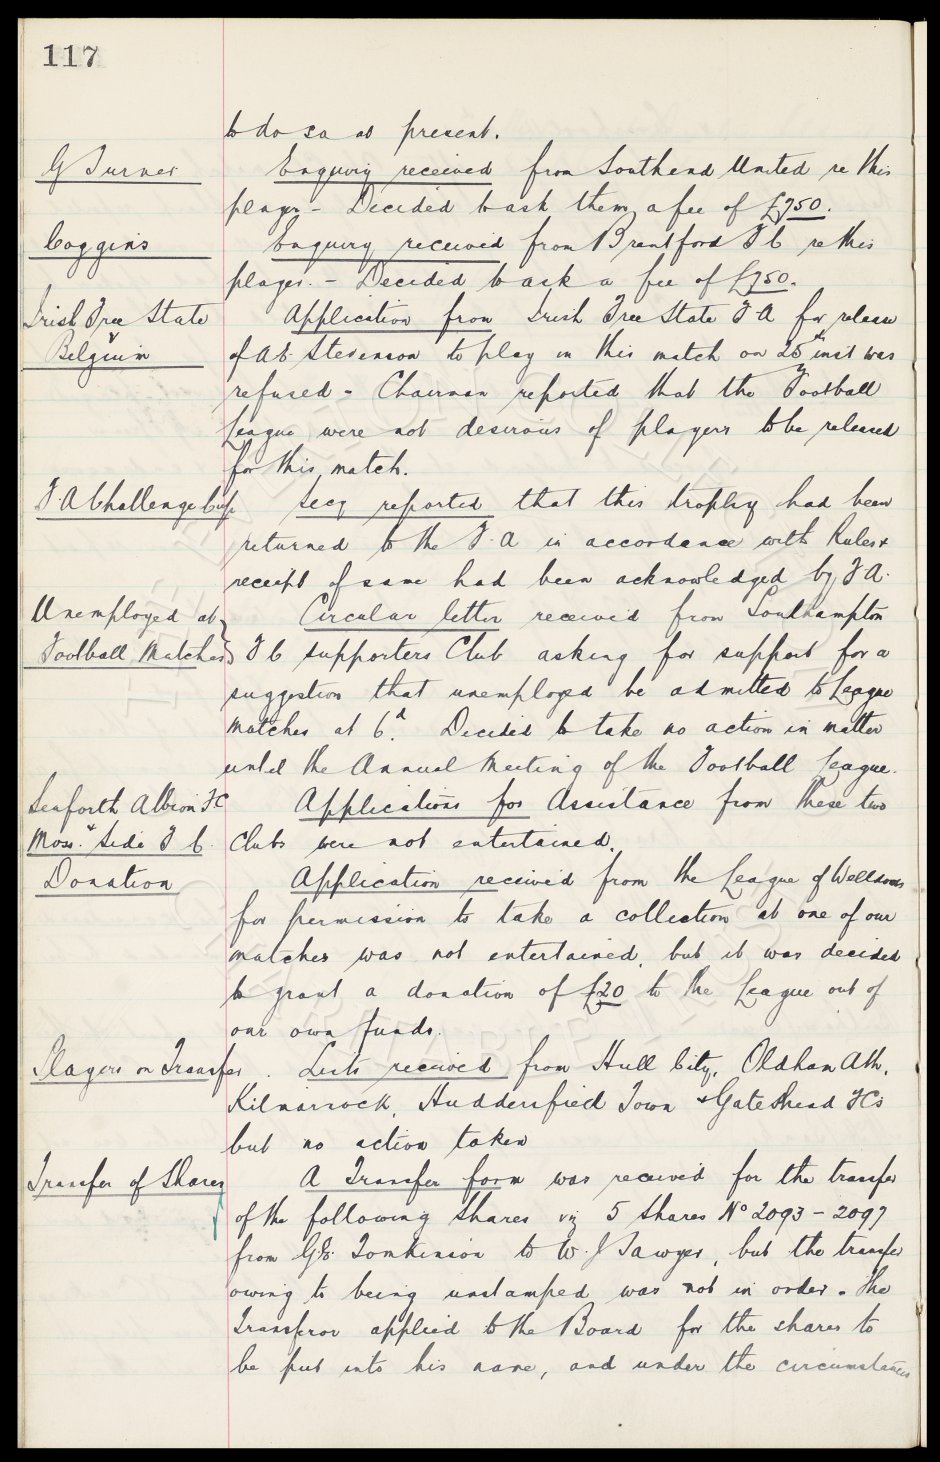 117
to do so at present.
G Turner Enquiry received from Southend United re this
player - Decided to ask them a fee of £750.
Coggins Enquiry received from Brentford F C re this
player. - Decided to ask a fee of £750.
Irish Free State Application from Irish Free State F A for release
v Belgium of A E Stevenson to play in this match on 25th inst was
refused - Chairman reported that the Football
League were not desirous of players to be released
for this match.
F.A Challenge Cup Secy reported that this trophy had been
returned to the F.A in accordance with Rules &
receipt of same had been acknowledged by F A.
Unemployed at Circular letter received from Southampton
Football Matches F C supporters Club asking for support for a
suggestion that unemployed be admitted to League
matches at 6d. Decided to take no action in matter
until the Annual Meeting of the Football League.
Seaforth Albion FC Applications for Assistance from these two
& Moss Side F C. Clubs were not entertained.
Donation Application received from the League of Welldoers
for permission to take a collection at one of our
matches was not entertained, but it was decided
to grant a donation of £20 to the League out of
our own funds.
Players on Transfer. Lists received from Hull City, Oldham Ath,
Kilmarnock, Huddersfield Town & Gateshead FCs
but no action taken
Transfer of Shares A Transfer form was received for the transfer
of the following shares viz 5 shares No 2093 - 2097
from G.E. Tomkinson to W. J Sawyer, but the transfer
owing to being unstamped was not in order. The
Transferor applied to the Board for the shares to
be put into his name, and under the circumstances